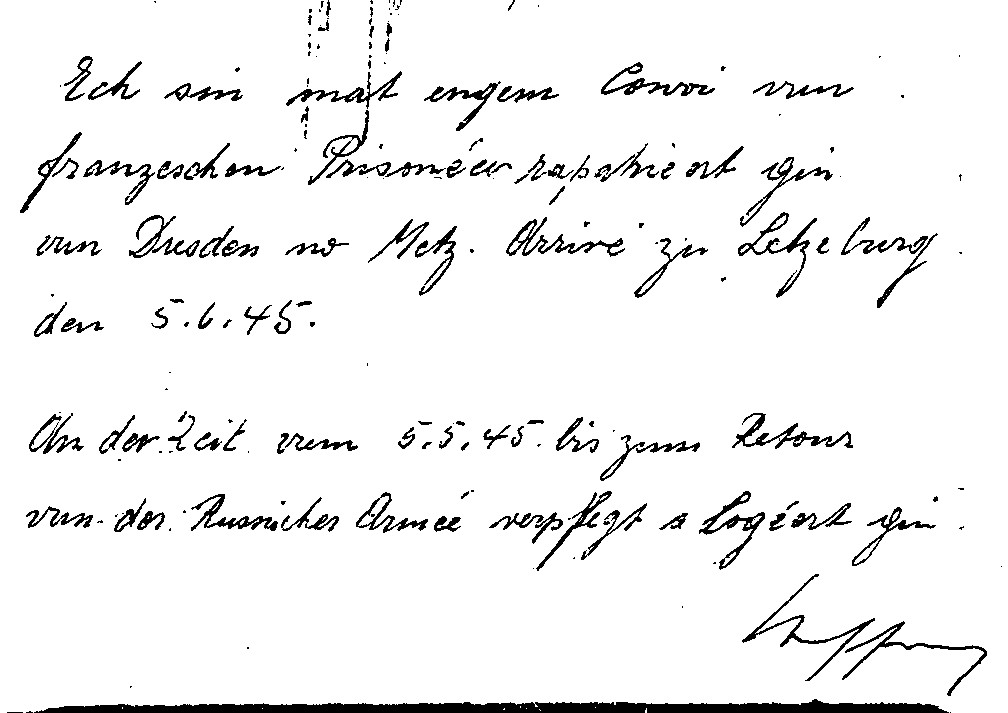 Ech sin mat engem Convoi vun
franzeschen Prisonéer rapatriéert gin
vun Dresden no Metz. Arrivé zu Letzeburg
den 5.6.45.
An der Zeit vum 5.5.45. bis zum Retour
vun der Russischer Armée verpflegt a Logéert gin.